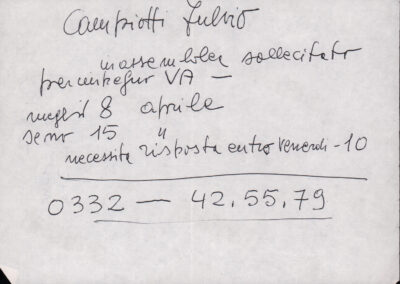 Campiotti Fulvio
in assemblea sollecitato
per convegno VA —
meglio 8 aprile
seno 15 "
necessita risposta entro Venerdi - 10
0332 — 42.55.79